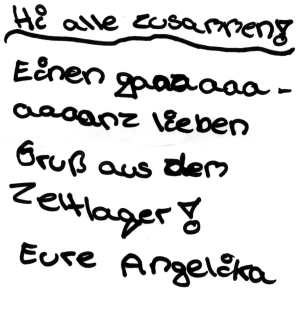 Hi alle zusammen!
Einen gaaaaaa-
aaaanz lieben
Gruß aus dem
Zeltlager!
Eure Angelika